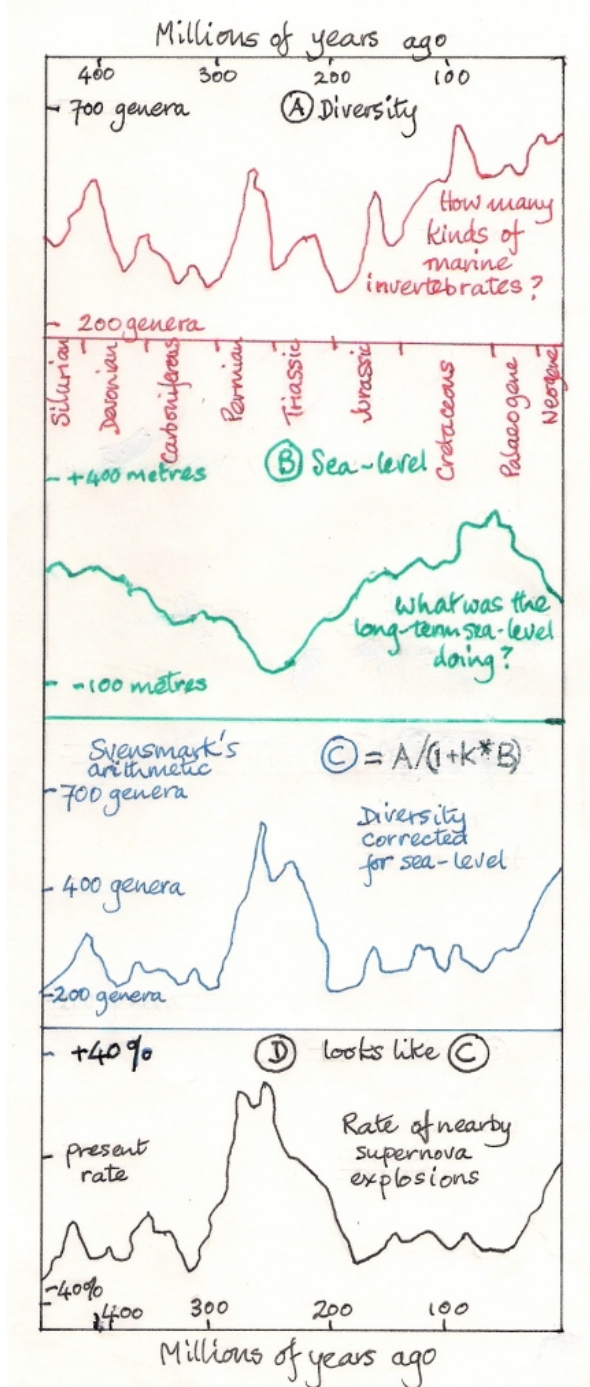 Millions of years ago
400 300 200 100
700 genera
Ⓐ Diversity
How many
kinds of
marine
invertebrates?
200 genera
Silurian
Devonian
Carboniferous
Permian
Triassic
Jurassic
Cretaceous
Palaeogene
Neogene
Ⓑ Sea-level
+400 metres
What was the
long-term sea-level
doing?
-100 metres
Svensmark's
arithmetic
Ⓒ = A/(1+K*B)
700 genera
Diversity
corrected
for sea-level
400 genera
200 genera
+40%
Ⓓ looks like Ⓒ
Rate of nearby
supernova
explosions
present
rate
-40%
400 300 200 100
Millions of years ago